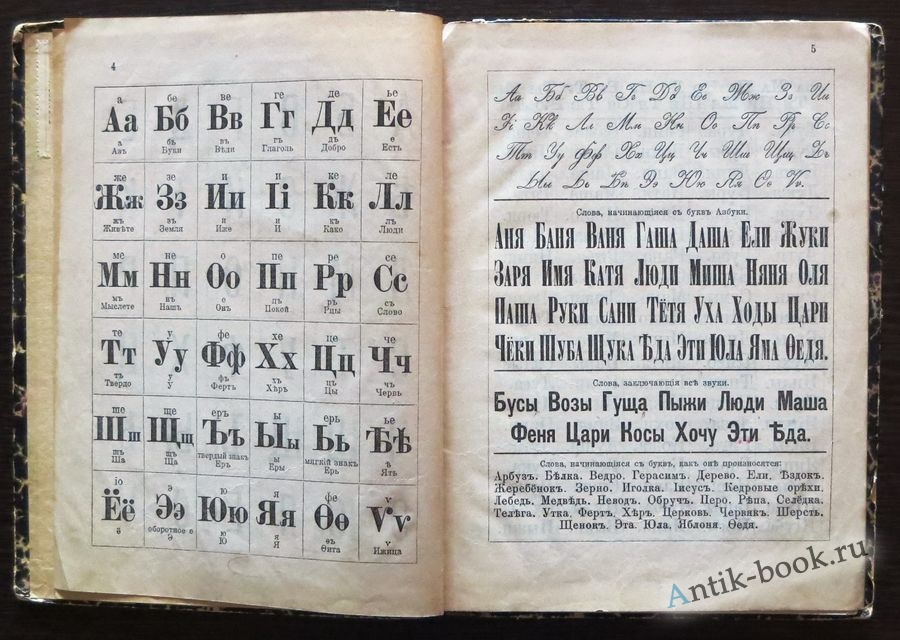 4
а бе ве ге де ье
Аа Бб Вв Гг Дд Ее
а бъ въ гъ дъ е
Азъ Буки Вѣди Глаголь Добро Есть
же зе и и ке ле
Жж Зз Ии Іі Кк Лл
жъ зъ и и къ лъ
Живѣте Земля Иже И Како Люди
ме не о пе ре се
Мм Нн Оо Пп Рр Сс
мъ нъ о пъ ръ съ
Мыслете Нашъ Онъ Покой Рцы Слово
те у фе хе це че
Тт Уу Фф Хх Цц Чч
тъ у фъ хъ цъ чъ
Твердо У Фертъ Хѣръ Цы Червь
ше ще еръ ы ерь ье
Шш Щщ Ъъ Ыы Ьь Ѣѣ
шъ щъ твердый знакъ ы мягкій знакъ ѣ
Ша Ща Еръ Еры Ерь Ять
іо э ю я фе ѵ
Ёё Ээ Юю Яя Ѳѳ Ѵѵ
ё оборотное э ю я ѳъ ѵ
Э Ю Я Ѳита Ижица
5
Аа Бб Вв Гг Дд Ее Жж Зз Ии
Іі Кк Лл Мм Нн Оо Пп Рр Сс
Тт Уу Фф Хх Цц Чч Шш Щщ Ъъ
Ыы Ьь Ѣѣ Ээ Юю Яя Ѳѳ Ѵѵ.
Слова, начинающіяся съ буквъ Азбуки.
Аня Баня Ваня Гаша Даша Ели Жуки
Заря Имя Катя Люди Миша Няня Оля
Паша Руки Сани Тётя Уха Ходы Цари
Чёки Шуба Щука Ѣда Эти Юла Яма Ѳедя.
Слова, заключающія всѣ звуки.
Бусы Возы Гуща Пыжи Люди Маша
Феня Цари Косы Хочу Эти Ѣда.
Слова, начинающіяся съ буквъ, какъ онѣ произносятся:
Арбузъ. Бѣлка. Ведро. Герасим. Дерево. Ели. Ѣздокъ.
Жеребёнокъ. Зерно. Иголка. Іисусъ. Кедровые орѣхи.
Лебедь. Медвѣдь. Неводъ. Обручъ. Перо. Рѣпа. Селёдка.
Телѣга. Утка. Фертъ. Хѣръ. Церковь. Червякъ. Шерсть.
Щенокъ. Эта. Юла. Яблоня. Ѳедя.
Antik-book.ru